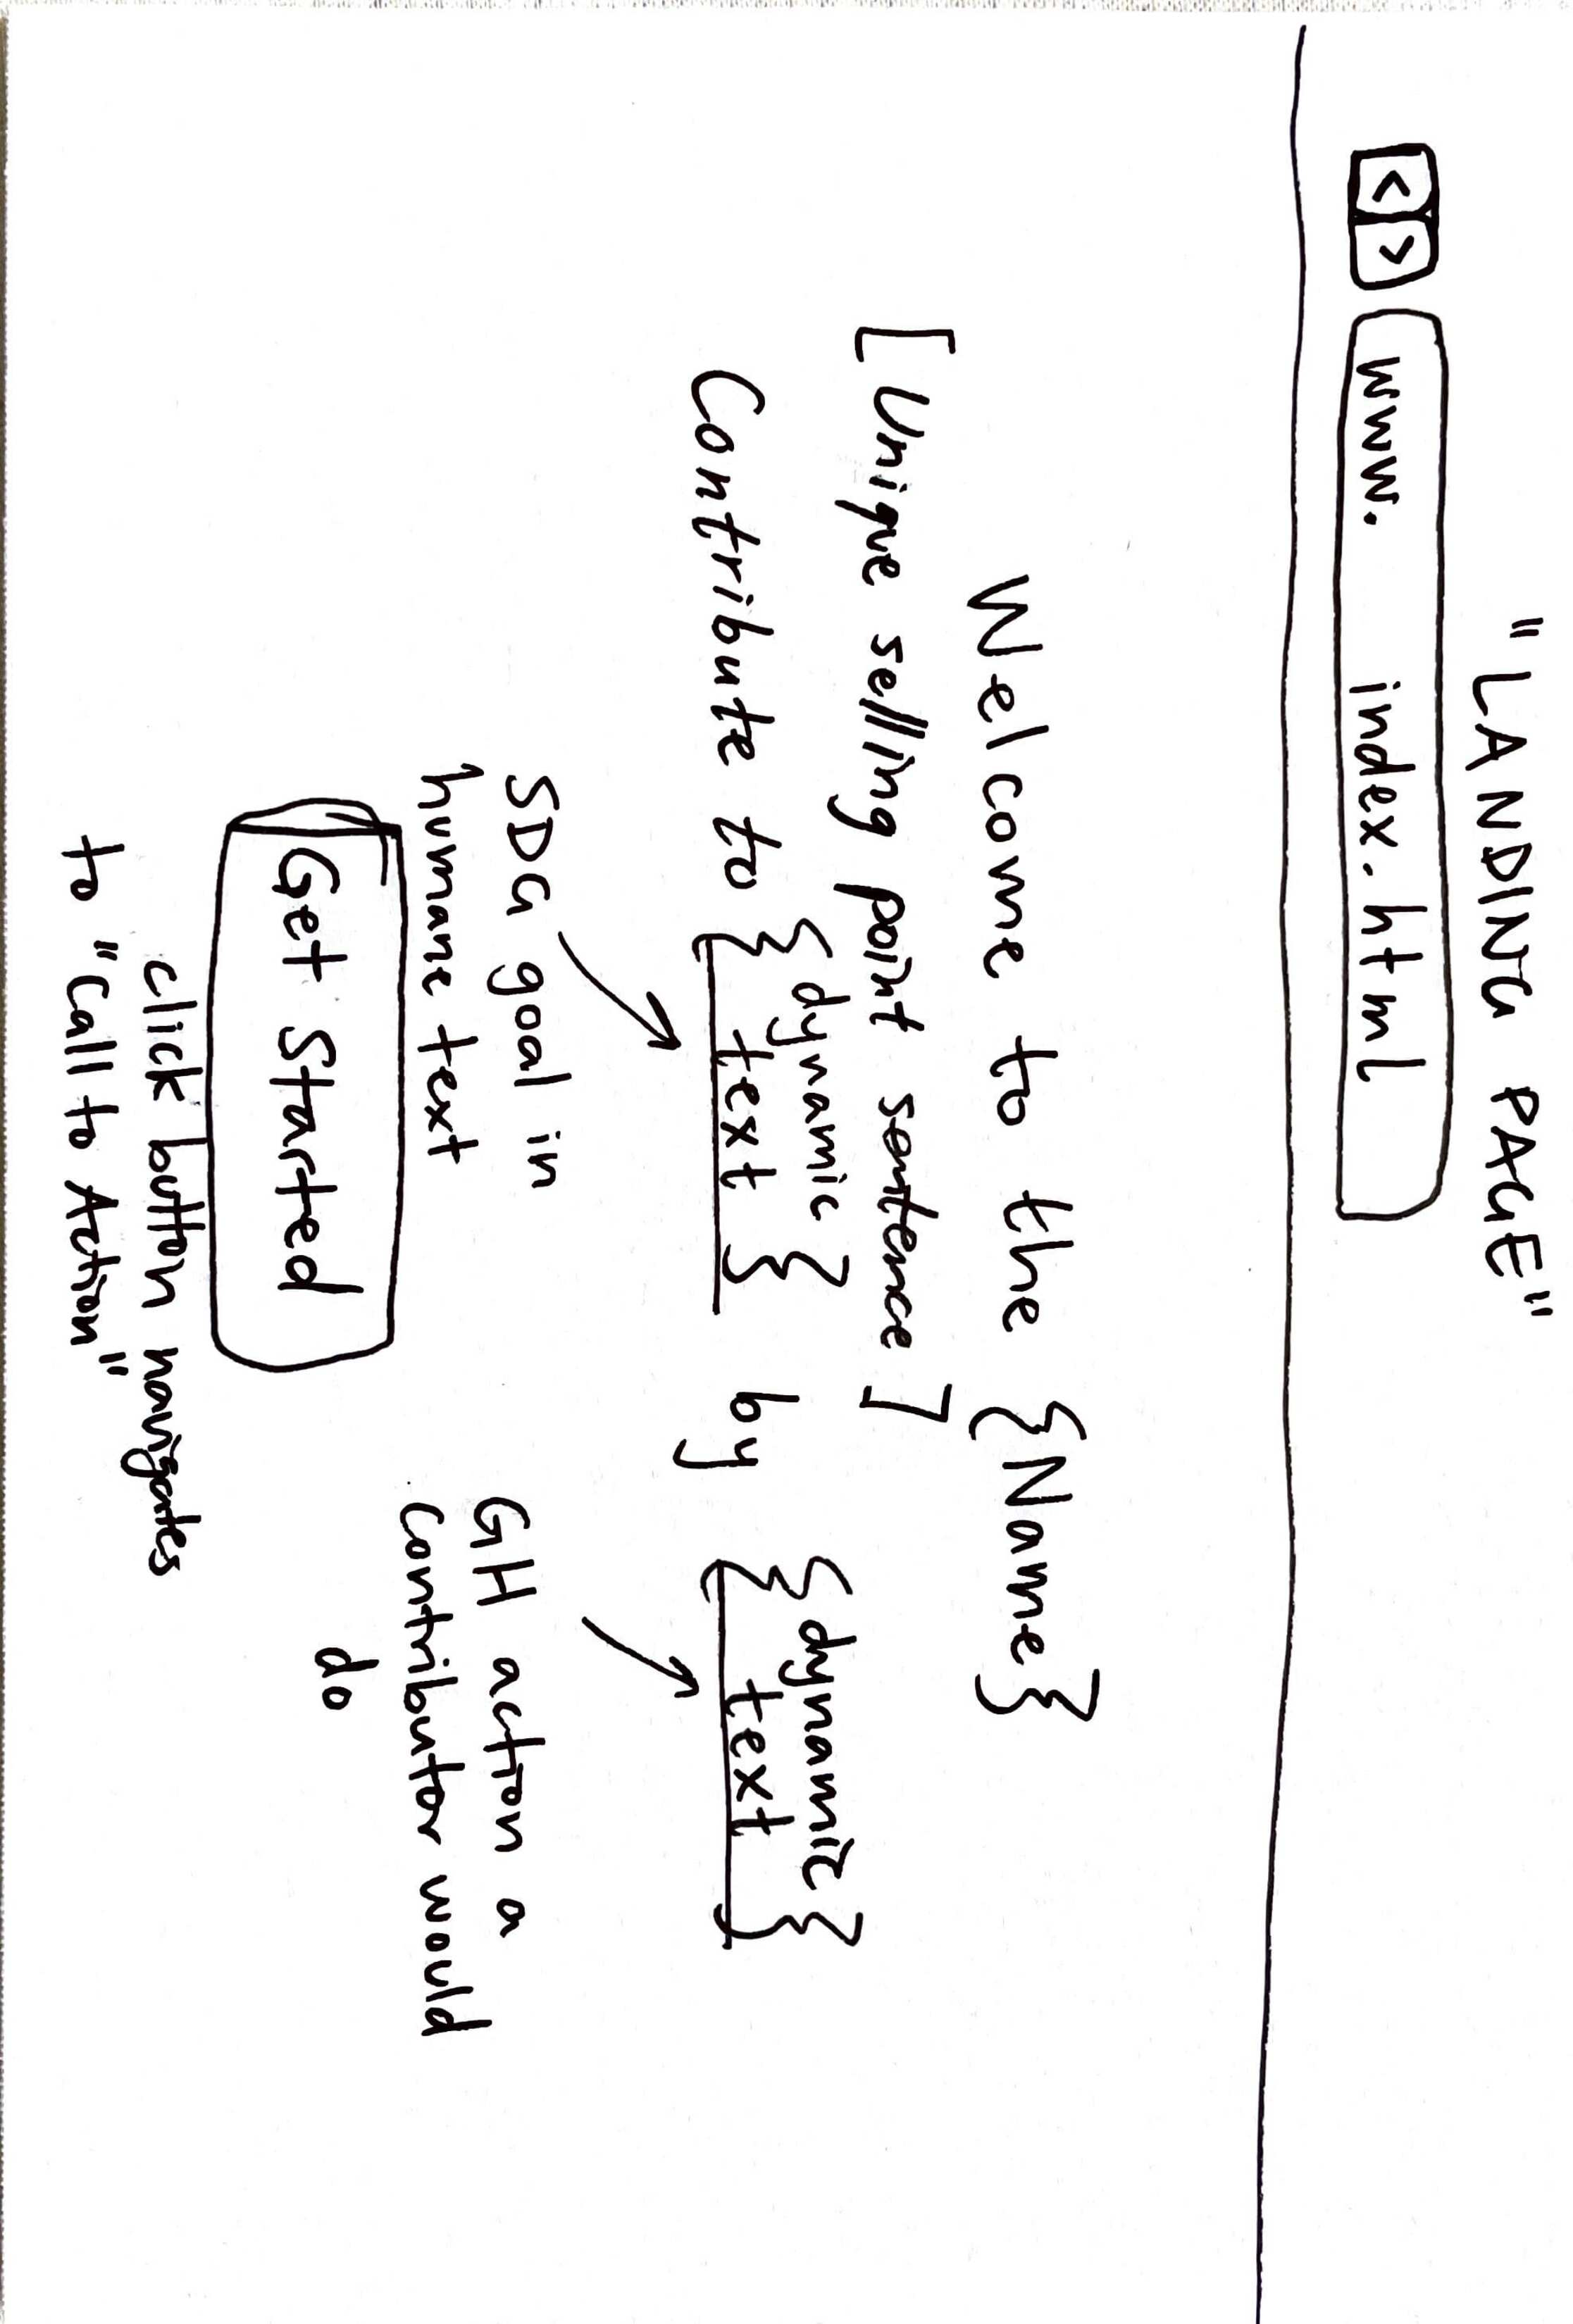 "LANDING PAGE"
< > www. index.html
Welcome to the {Name}
[Unique selling point sentence]
Contribute to {dynamic text} by {dynamic text}
SDG goal in
humane text
GH action a
contributor would
do
Get Started
click button navigates
to "Call to Action"